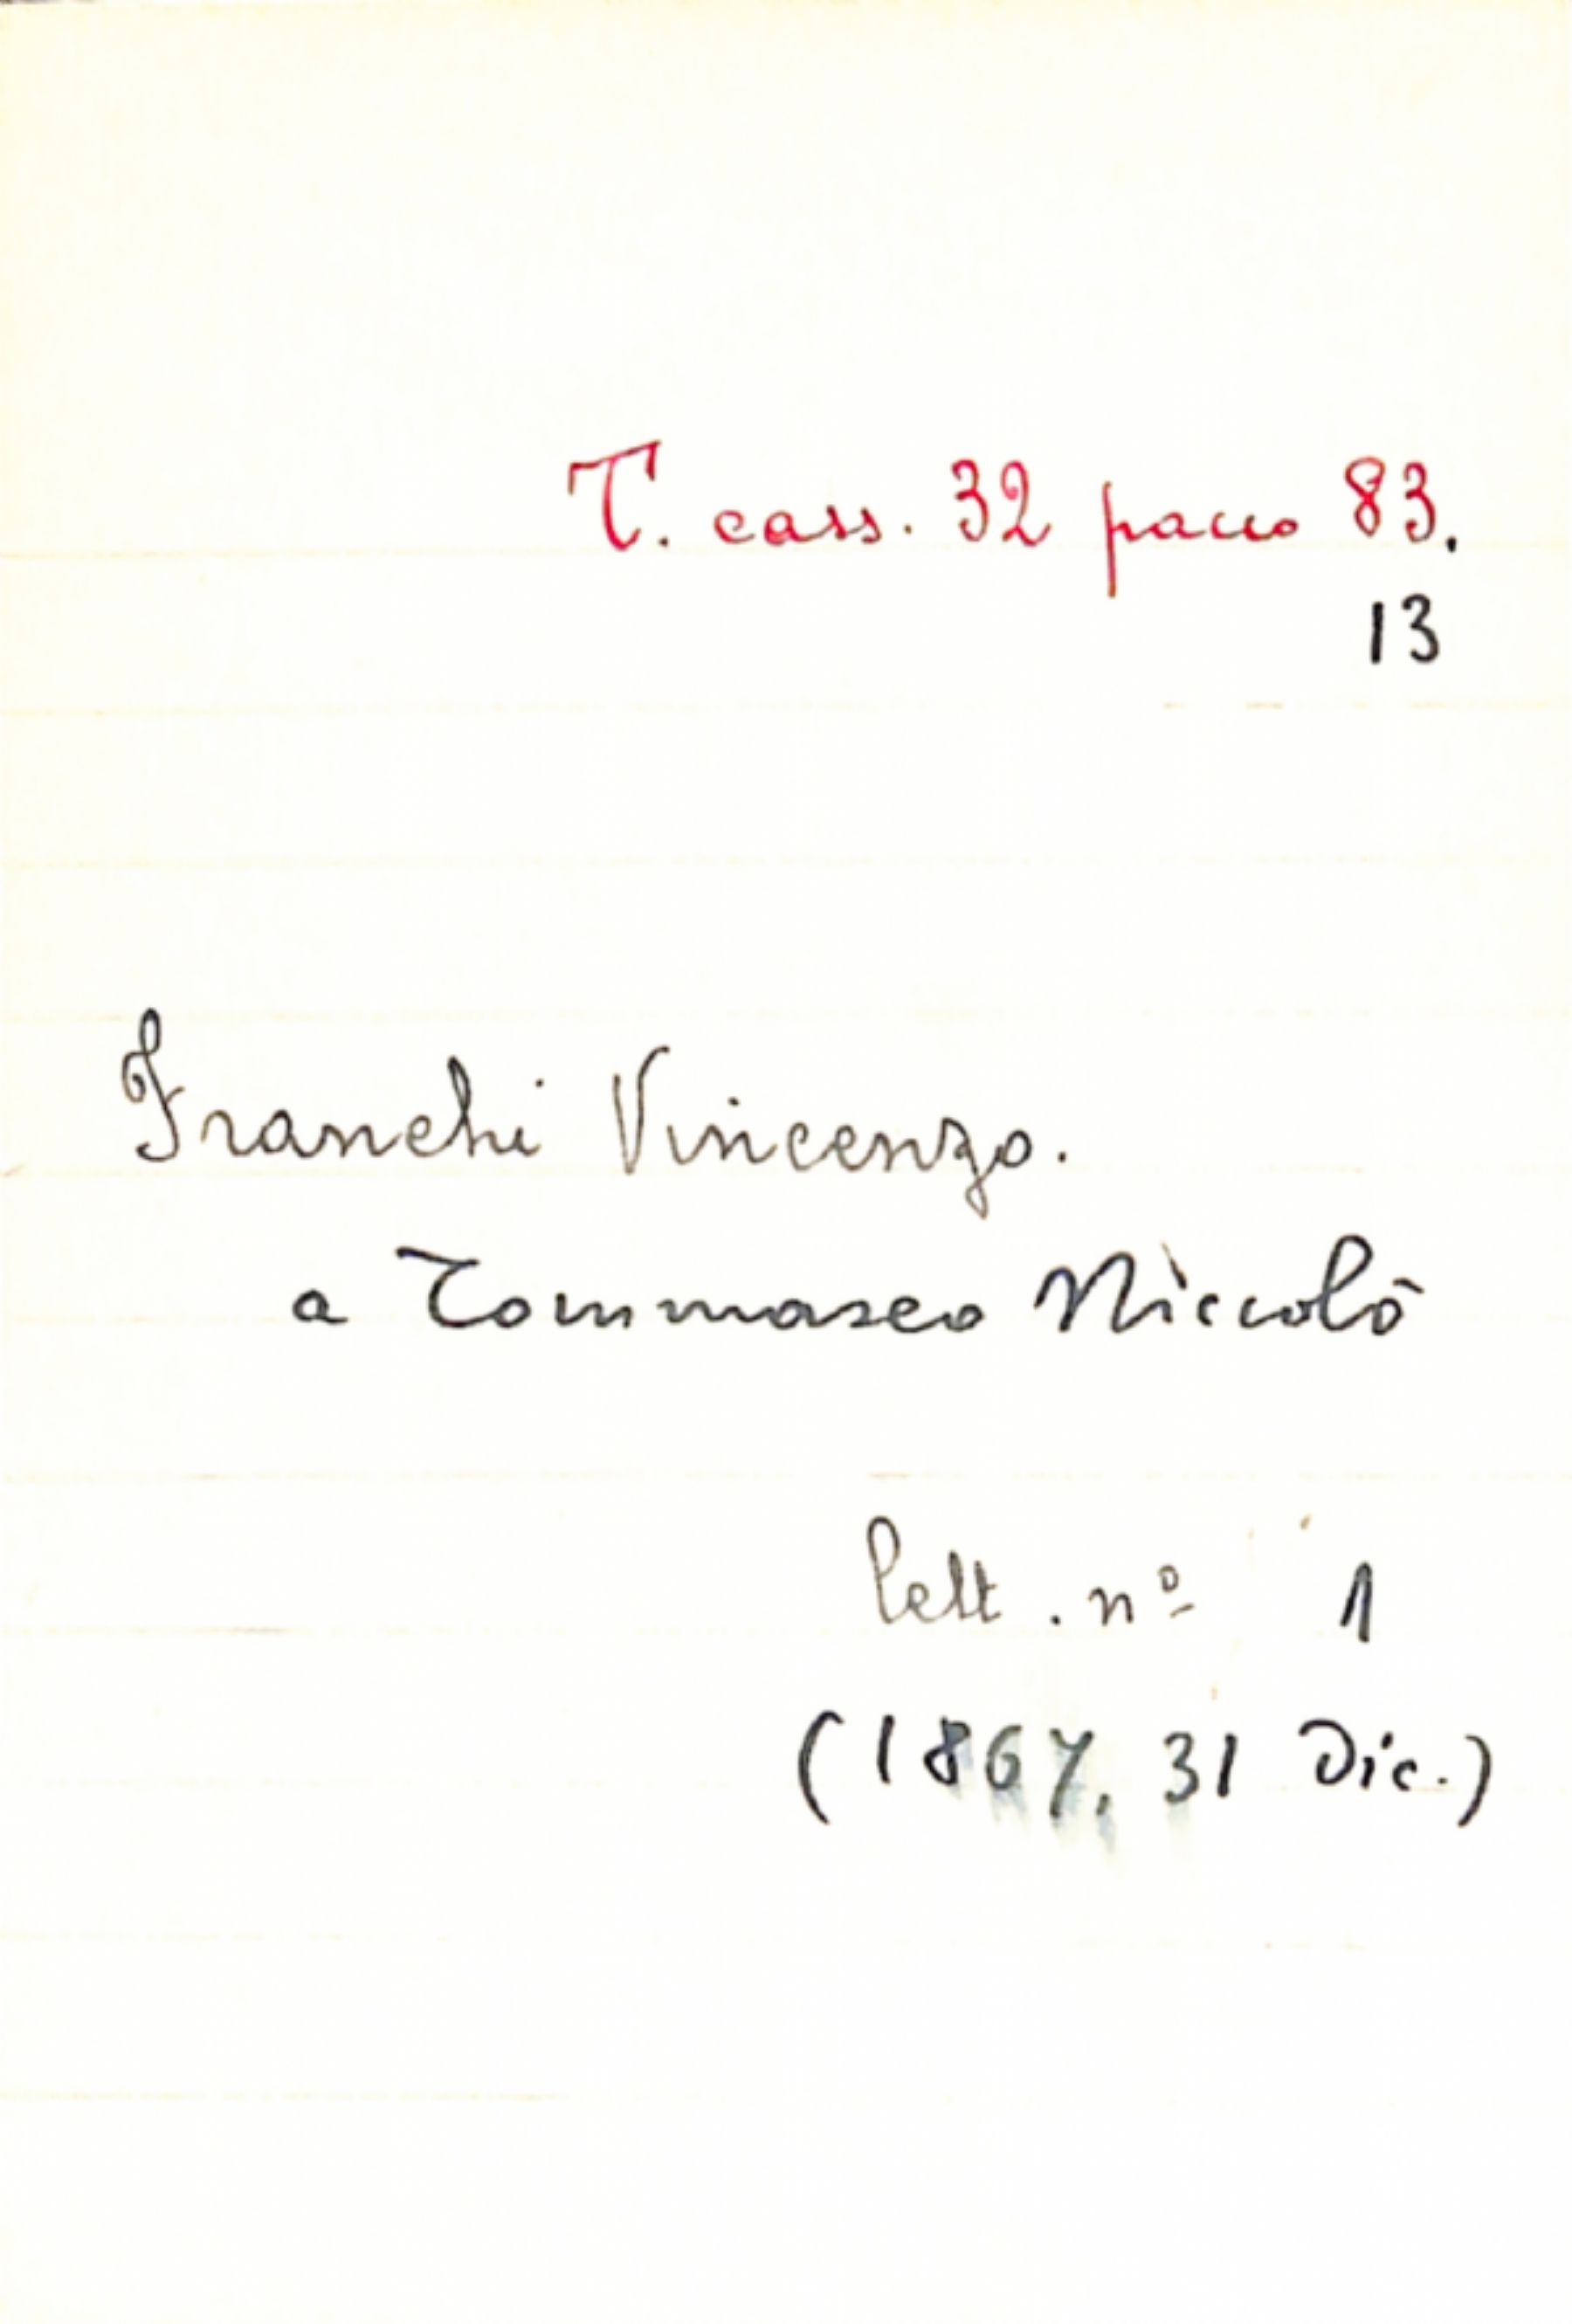 T. cass. 32 pacco 83.
13
Franchi Vincenzo.
a Tommaseo Niccolò
lett. nº 1
(1867, 31 Dic.)